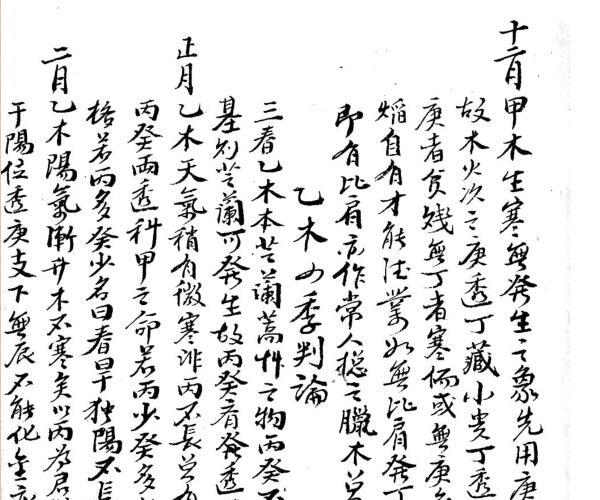 十二月甲木生寒無發生之象先用庚
故木火次之庚透丁藏小贵丁透
庚者貧賤無丁者寒儒或無庚
熖自有才能德業如無比肩發丁
即有比肩亦作常人揔之臘木
乙木四季判論
三春乙木本芝蘭蒿艸之物丙癸不
基則芝蘭可發生故丙癸齊發透
正月乙木天氣稍有微寒非丙不長
丙癸兩透科甲之命若丙少癸多
格若丙多癸少名曰春旱獨陽不長
二月乙木陽氣漸升木不寒矣以丙為君
干陽位透庚支下無辰不能化金